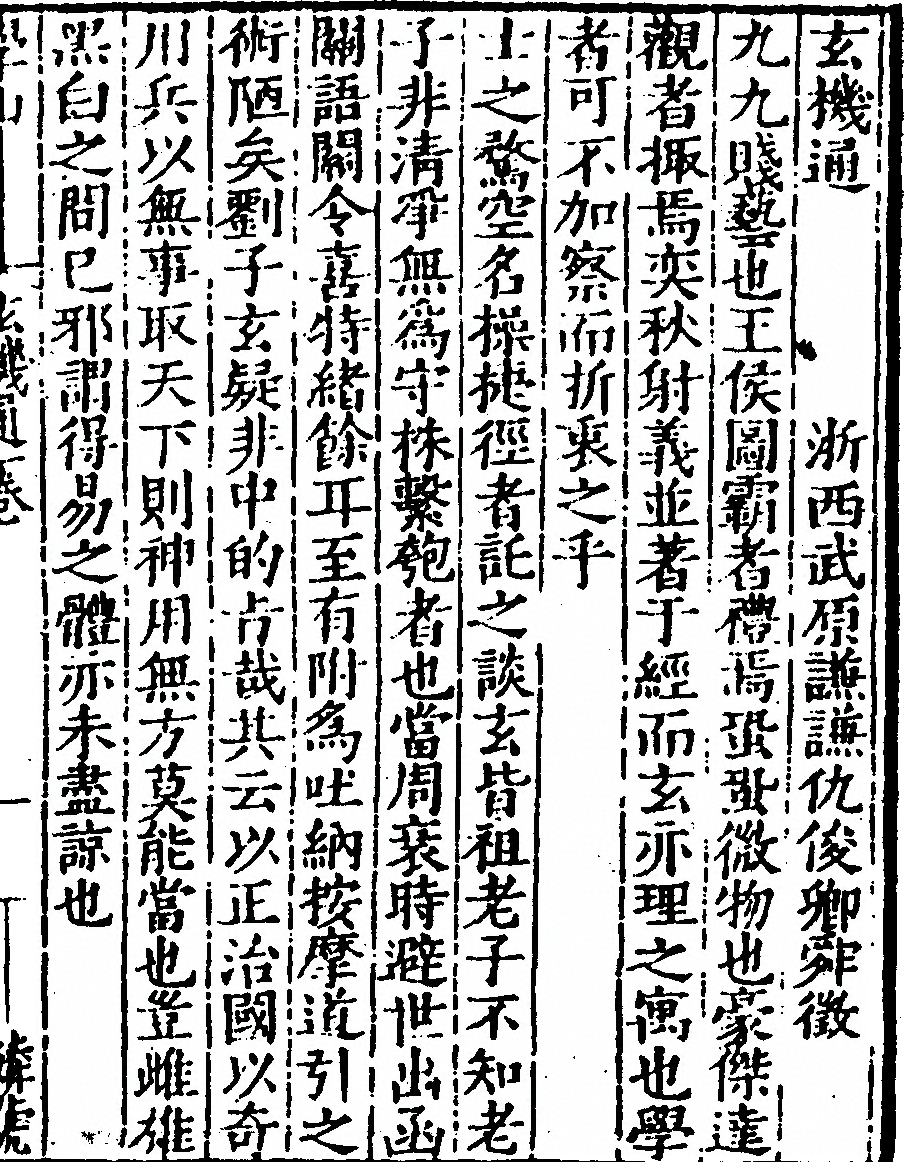 玄機通　浙西武原謙謙仇俊卿舜徵
九九賤藝也王侯圖霸者禮焉蛩蛩微物也豪傑達
觀者掫焉奕秋射義並著于經而玄亦理之寓也學
者可不加察而折衷之乎
士之騖空名操捷徑者託之談玄皆祖老子不知老
子非清爭無為守株繫匏者也當周衰時避世出函
關語關令喜特緒餘耳至有附為吐納按摩道引之
術陋矣劉子玄疑非中的占哉其云以正治國以奇
用兵以無事取天下則神用無方莫能當也豈雌雄
黑白之間巳邪謂得易之體亦未盡諒也
玄機通卷